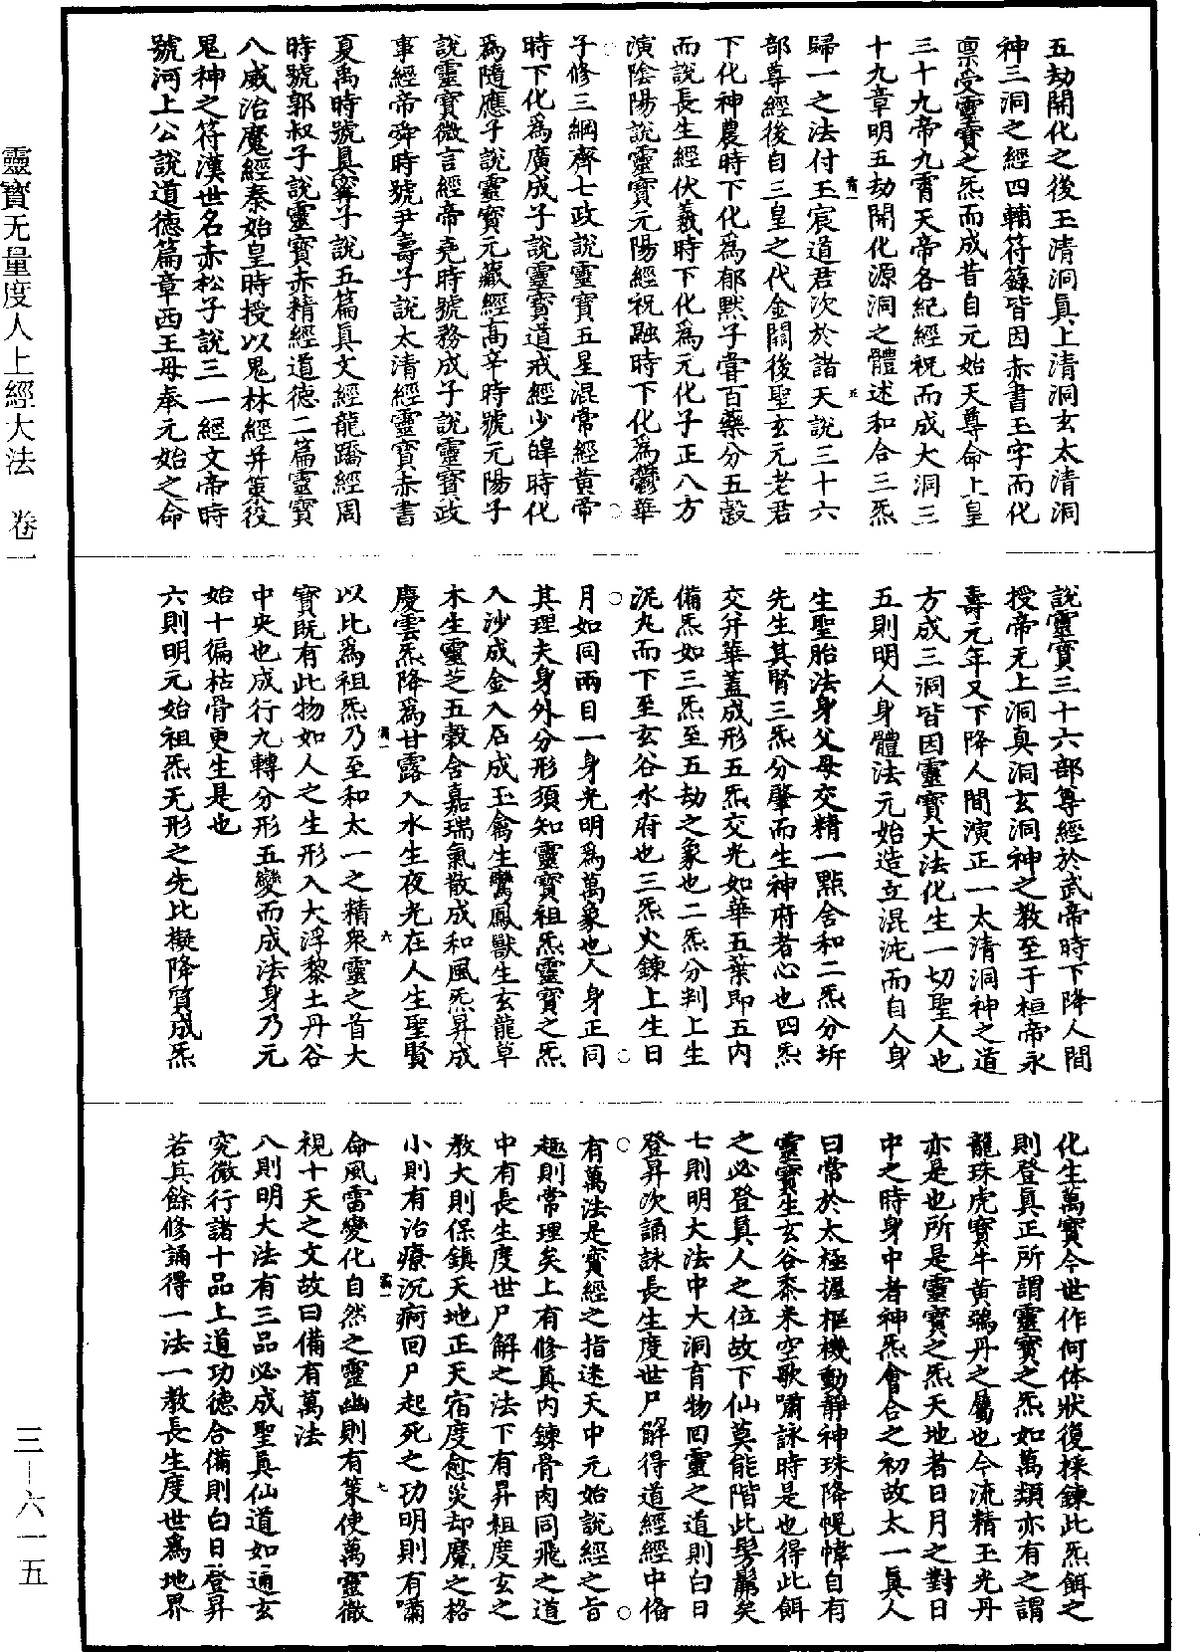 靈寶无量度人上經大法　卷一
五劫開化之後玉清洞眞上清洞玄太清洞
神三洞之經四輔符籙皆因赤書玉字而化
禀受靈寶之炁而成昔自元始天尊命上皇
三十九帝九霄天帝各紀經祝而成大洞三
十九章明五劫開化源洞之體述和合三炁
歸一之法付玉宸道君次於諸天說三十六
部尊經後自三皇之代金闕後聖玄元老君
下化神農時下化爲郁默子嘗百藥分五穀
而說長生經伏羲時下化爲元化子正八方
演陰陽說靈寶元陽經祝融時下化爲鬱華
子修三綱齊七政說靈寶五星混常經黃帝
時下化爲廣成子說靈寶道戒經少皥時化
爲隨應子說靈寶元藏經高辛時號元陽子
說靈寶微言經帝堯時號務成子說靈寶政
事經帝舜時號尹壽子說太清經靈寶赤書
夏禹時號眞寗子說五篇眞文經龍蹻經周
時號郭叔子說靈寶赤精經道德二篇靈寶
八威治魔經秦始皇時授以鬼林經并策役
鬼神之符漢世名赤松子說三一經文帝時
號河上公說道德篇章西王母奉元始之命
說靈寶三十六部尊經於武帝時下降人間
授帝无上洞真洞玄洞神之教至于桓帝永
壽元年又下降人間演正一太清洞神之道
方成三洞皆因靈寶大法化生一切聖人也
五則明人身體法元始造立混沌而自人身
生聖胎法身父母交精一點含和二炁分坼
先生其腎三炁分肇而生神府者心也四炁
交并華蓋成形五炁交光如華五葉即五内
備炁如三炁至五劫之象也二炁分判上生
泥丸而下至玄谷水府也三炁火鍊上生日
月如同兩目一身光明爲萬象也人身正同
其理夫身外分形須知靈寶祖炁靈寶之炁
入沙成金入石成玉禽生鸞鳳獸生玄龍草
木生靈芝五穀含嘉瑞氣散成和風炁昇成
慶雲炁降爲甘露入水生夜光在人生聖賢
以比爲祖炁乃至和太一之精衆靈之首大
寶既有此物如人之生形入大浮黎土丹谷
中央也成行九轉分形五變而成法身乃元
始十徧枯骨更生是也
六則明元始祖炁无形之先比擬降質成炁
化生萬寶今世作何体狀復採鍊此炁餌之
則登真正所謂靈寶之炁如萬類亦有之謂
龍珠虎寶牛黃瑞丹之屬也今流精玉光丹
亦是也所是靈寶之炁天地者日月之對日
中之時身中者神炁會合之初故太一眞人
曰常於太極握樞機動靜神珠降幌幃自有
靈寶生玄谷黍米空歌嘯詠時是也得此餌
之必登眞人之位故下仙莫能階此髣髴矣
七則明大法中大洞育物回靈之道則白日
登昇次誦詠長生度世尸解得道經經中俻
有萬法是寶經之指迷天中元始說經之旨
趣則常理矣上有修眞内鍊骨肉同飛之道
中有長生度世尸解之法下有昇祖度玄之
教大則保鎮天地正天宿度愈災却魔之格
小則有治療沉痾回尸起死之功明則有嘯
命風雷變化自然之靈幽則有策使萬靈徹
視十天之文故曰備有萬法
八則明大法有三品必成聖眞仙道如通玄
究微行諸十品上道功德合備則白日登昇
若其餘修誦得一法一教長生度世爲地界
三—六一五